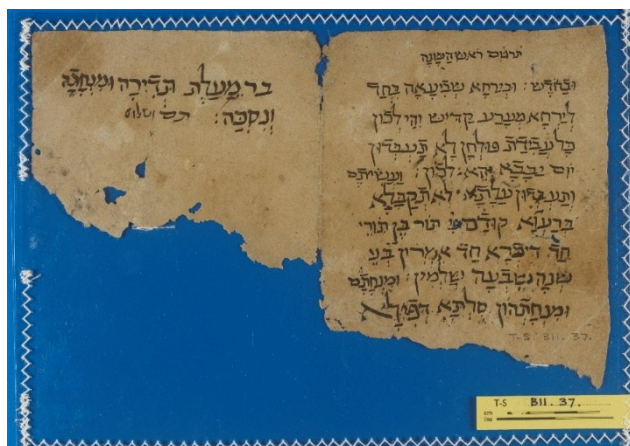 תרגום ראש השנה
ובחדש : ובירחא שביעאה בחד
לירחא מערע קדיש יהי לכון
כל עבידת פולחן לא תעבדון
יום יבבא יהא לכון : ועשיתם
ותעבדון עלתא לאתקבלא
ברעוא קודם תור בן תורי
חד דיכרא חד אמרין בני
שנה שבעה שלמין : ומנחתם
ומנחתהון סולתא דפילא
T-S. B11. 37.
בר מעלת תדירה ומנחתה
ונסכה : תם ושלום
T-S B11. 37.